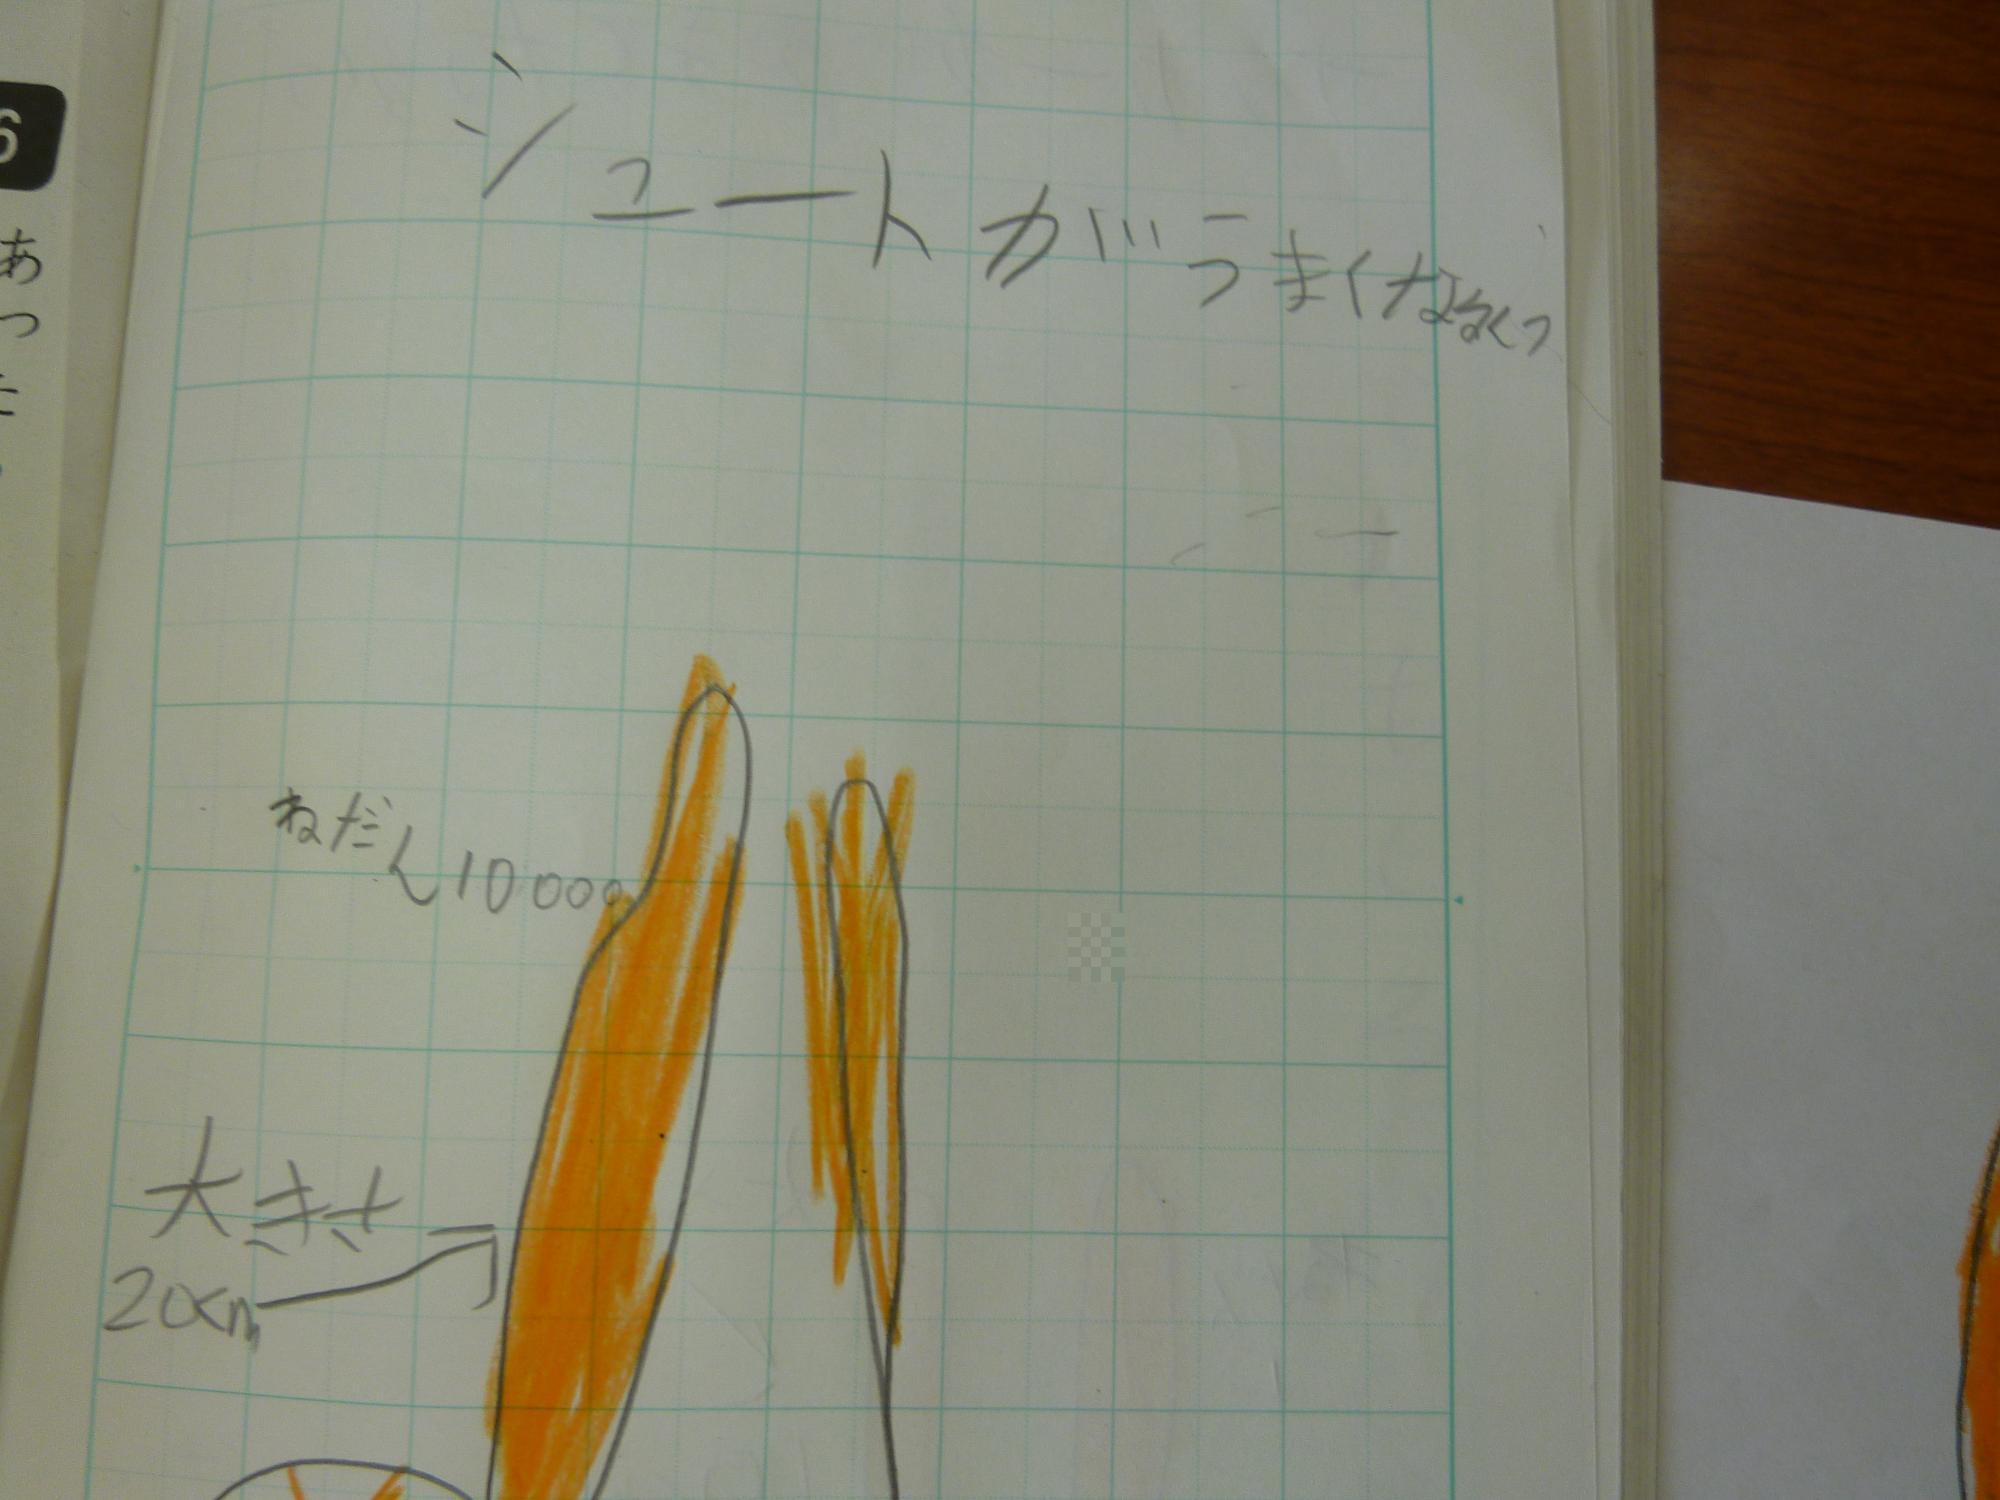 シュートがうまくなるくつ
ねだん10000
大きさ
20cm
6
あった